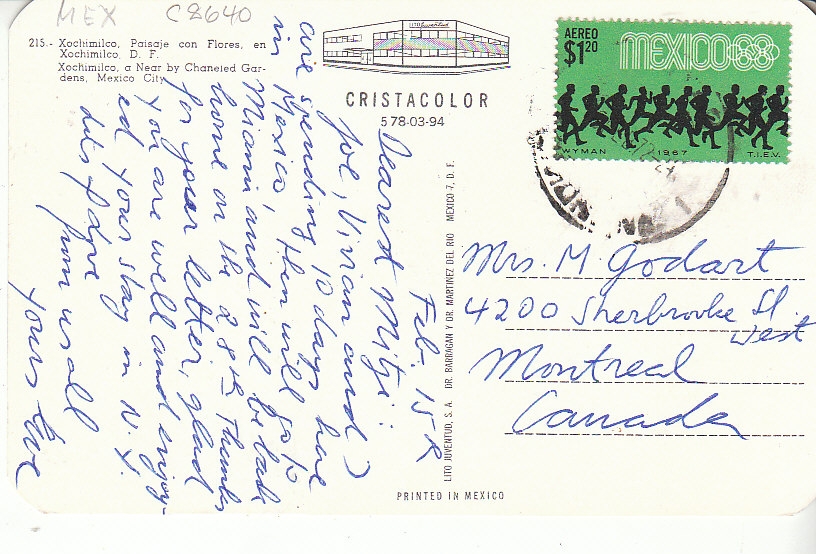 MEX C2640
215.- Xochimilco, Paisaje con Flores, en
Xochimilco, D. F.
Xochimilco, a Near by Chaneled Gar-
dens, Mexico City
LITO Juventud
CRISTACOLOR
5 78-03-94
AEREO
$1.20
MEXICO68
WYMAN 1967 T.I.E.V.
Feb. 15
Dearest Mitzi:
Joe, Vivian and I
are spending 10 days here
in Mexico, then will go to
Miami and will be back
home on the 28th Thanks
for your letter, glad
you are well and enjoy-
ed your stay in N.Y.
Lots of love
from us all
Yours
LITO JUVENTUD, S.A. DR. BARRAGAN Y DR. MARTINEZ DEL RIO MEXICO 7, D. F.
Mrs. M. Godart
4200 Sherbrooke St.
West
Montreal
Canada
PRINTED IN MEXICO